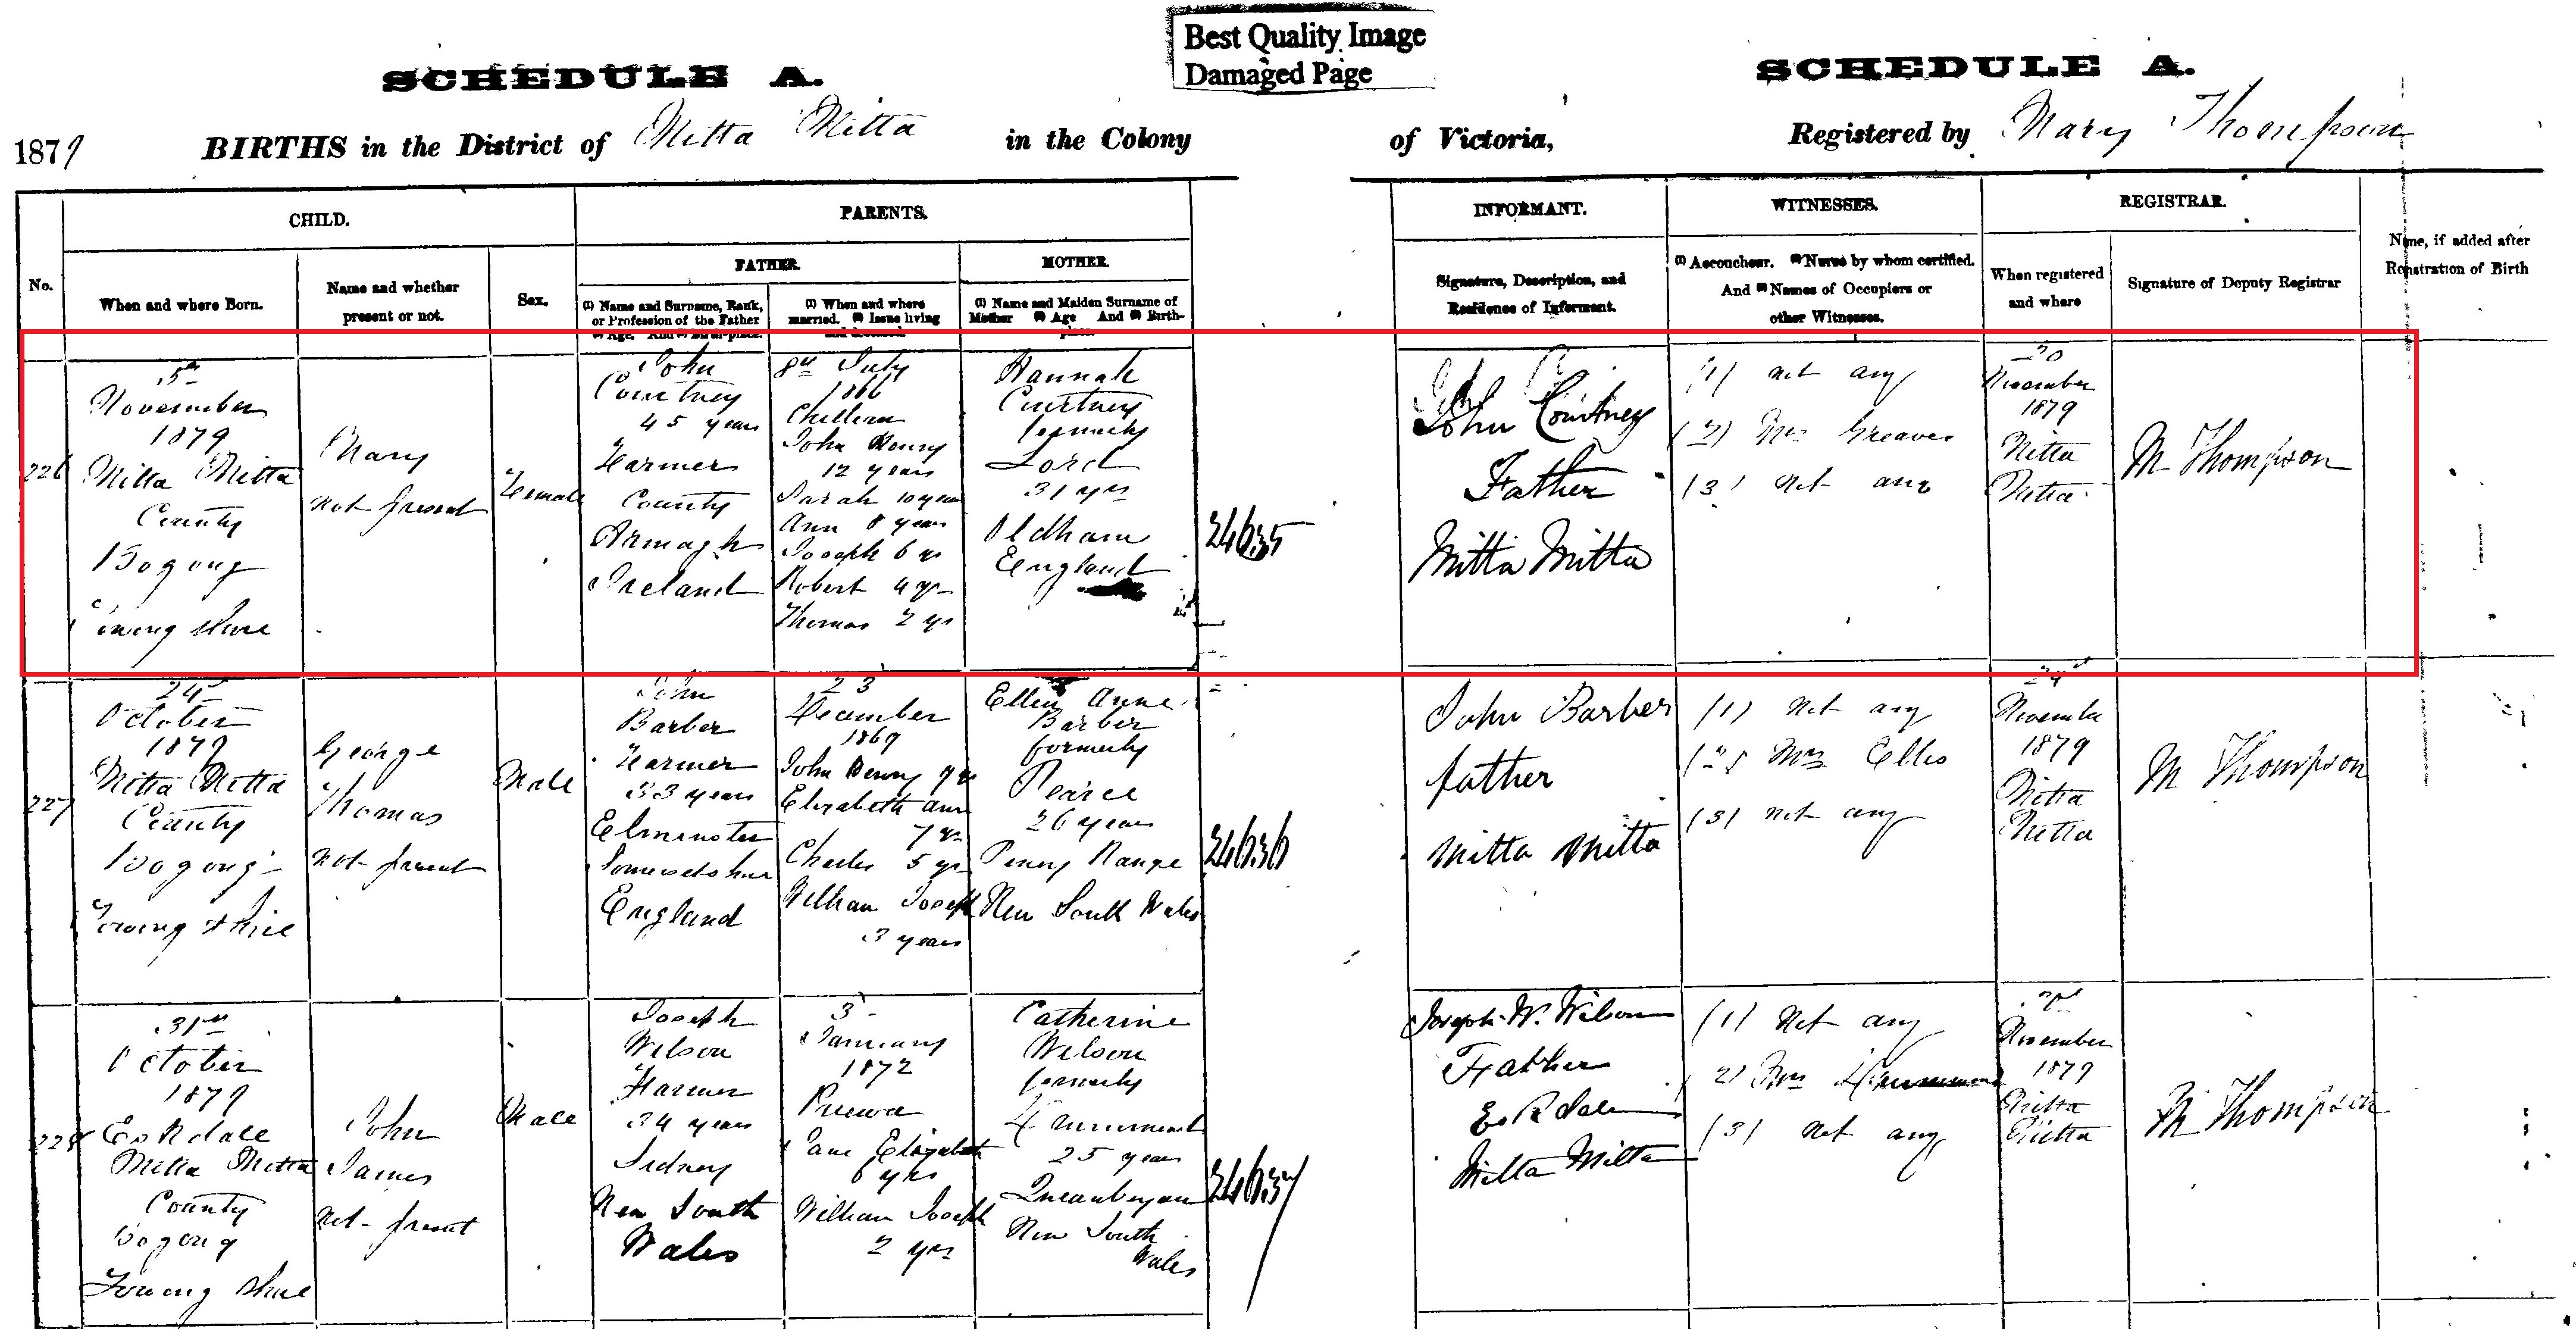 Best Quality Image
Damaged Page
SCHEDULE A.
SCHEDULE A.
1879 BIRTHS in the District of Mitta Mitta in the Colony of Victoria, Registered by Mary Thompson
CHILD.
PARENTS.
INFORMANT.
WITNESSES.
REGISTRAR.
FATHER.
MOTHER.
No.
When and where Born.
Name and whether
present or not.
Sex.
(1) Name and Surname, Rank,
or Profession of the Father
Age. And Birth-place.
(1) When and where
married. (2) Issue living
and deceased
(1) Name and Maiden Surname of
Mother (2) Age And (3) Birth-
place.
Signature, Description, and
Residence of Informant.
(1) Accoucheur. (2) Nurse by whom certified.
And (3) Names of Occupiers or
other Witnesses.
When registered
and where
Signature of Deputy Registrar
Name, if added after
Registration of Birth
226
5th
November
1879
Mitta Mitta
County
Bogong
Towong Shire
Mary
not present
Female
John
Courtney
45 years
Farmer
County
Armagh
Ireland
8th July
1866
Chiltern
John Henry
12 years
Sarah 10 years
Ann 8 years
Joseph 6 yrs
Robert 4 yrs
Thomas 2 yrs
Hannah
Courtney
formerly
Lord
31 yrs
Oldham
England
24635
John Courtney
Father
Mitta Mitta
(1) not any
(2) Mrs Greaves
(3) not any
30
November
1879
Mitta
Mitta
M Thompson
227
24
October
1879
Mitta Mitta
County
Bogong
Towong Shire
George
Thomas
not present
Male
John
Barber
Farmer
33 years
Elminster
Somersetshire
England
23
December
1869
John Henry 9 yrs
Elizabeth Ann
7 yrs
Charles 5 yrs
William Joseph
3 years
Ellen Anne
Barber
formerly
Pearce
26 years
Range
New South Wales
24636
John Barber
father
Mitta Mitta
(1) not any
(2) Mrs Ellis
(3) not any
November
1879
Mitta
Mitta
M Thompson
228
31st
October
1879
Eskdale
Mitta Mitta
County
Bogong
Towong Shire
John
James
not present
Male
Joseph
Wilson
Farmer
34 years
Sidney
New South
Wales
3
January
1872
Jane Elizabeth
6 yrs
William Joseph
2 yrs
Catherine
Wilson
formerly
25 years
Queanbeyan
New South
Wales
24637
Joseph W. Wilson
Father
Eskdale
Mitta Mitta
(1) not any
2) Mrs
(3) not any
November
1879
Mitta
Mitta
M Thompson